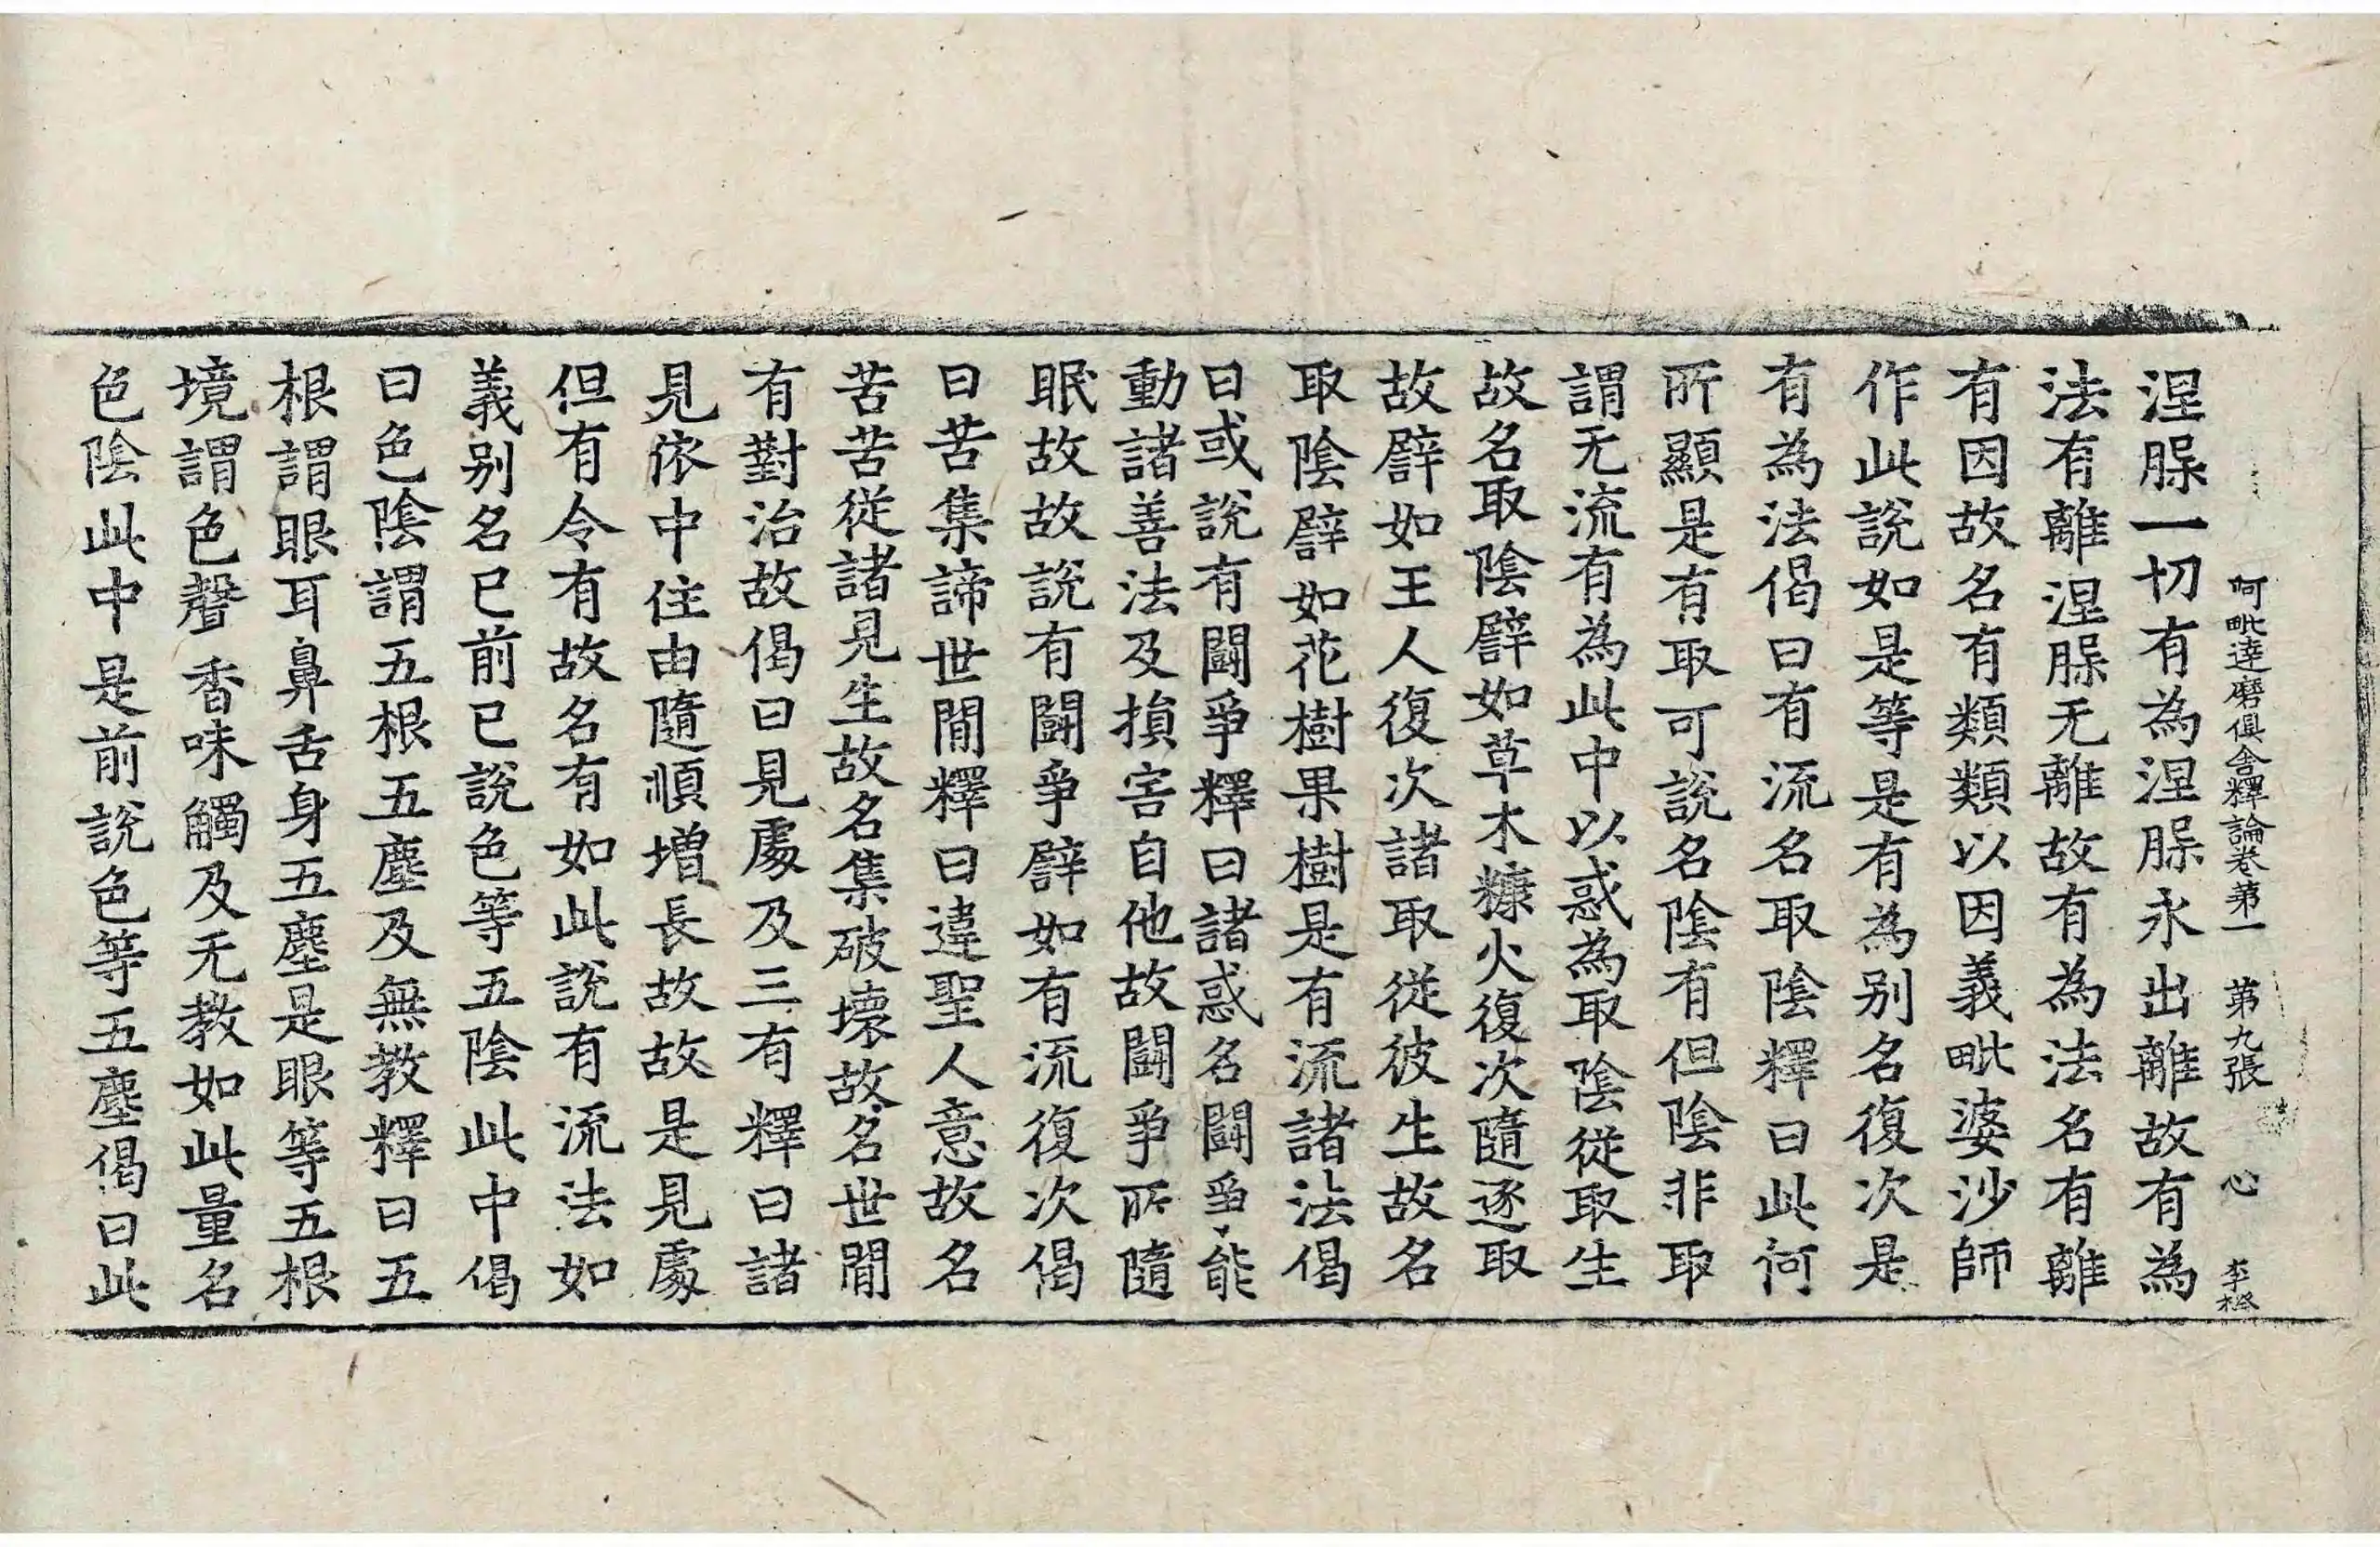 阿毗達磨俱舍釋論卷第一 第九張 心 李橙
涅脲一切有為涅脲永出離故有為
法有離涅脲无離故有為法名有離
有因故名有類類以因義毗婆沙師
作此說如是等是有為別名復次是
有為法偈曰有流名取陰釋曰此何
所顯是有取可說名陰有但陰非取
謂无流有為此中以惑為取陰從取生
故名取陰譬如草木糠火復次隨逐取
故譬如王人復次諸取從彼生故名
取陰譬如花樹果樹是有流諸法偈
曰或說有鬪爭釋曰諸惑名鬪爭能
動諸善法及損害自他故鬪爭所隨
眠故故說有鬪爭譬如有流復次偈
曰苦集諦世間釋曰違聖人意故名
苦苦從諸見生故名集破壞故名世間
有對治故偈曰見處及三有釋曰諸
見依中住由隨順增長故故是見處
但有令有故名有如此說有流法如
義別名已前已說色等五陰此中偈
曰色陰謂五根五塵及無教釋曰五
根謂眼耳鼻舌身五塵是眼等五根
境謂色聲香味觸及无教如此量名
色陰此中是前說色等五塵偈曰此